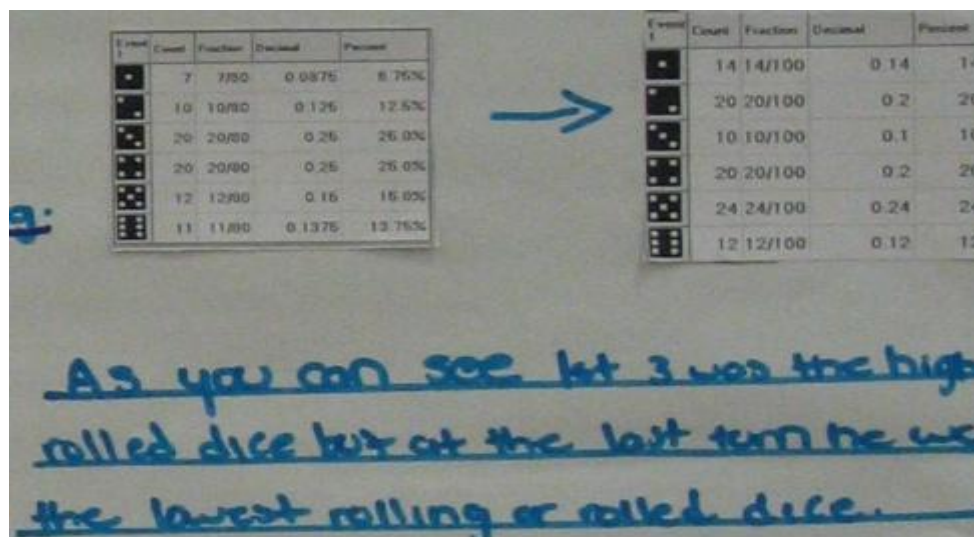 Event 1 Count Fraction Decimal Percent
7 7/80 0.0875 8.75%
10 10/80 0.125 12.5%
20 20/80 0.25 25.0%
20 20/80 0.25 25.0%
12 12/80 0.15 15.0%
11 11/80 0.1375 13.75%
Event 1 Count Fraction Decimal Percent
14 14/100 0.14
20 20/100 0.2
10 10/100 0.1
20 20/100 0.2
24 24/100 0.24
12 12/100 0.12
As you can see 1st 3 was the high
rolled dice but at the last turn he
the lowest rolling or rolled dice.